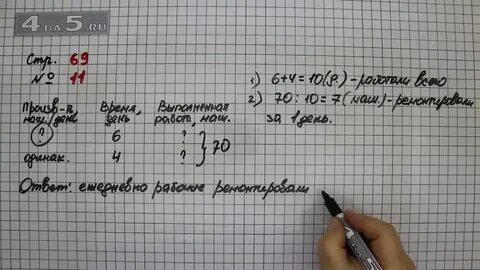 4DA5.RU
Стр. 69
№ 11
Произв-ть, Время, Выполненная
маш./день день работа, маш.
? 6 ?
одинак. 4 ? } 70
Ответ: ежедневно рабочие ремонтировали
1) 6+4=10(д.)-работали всего
2) 70:10=7(маш.)-ремонтировали
за 1 день.